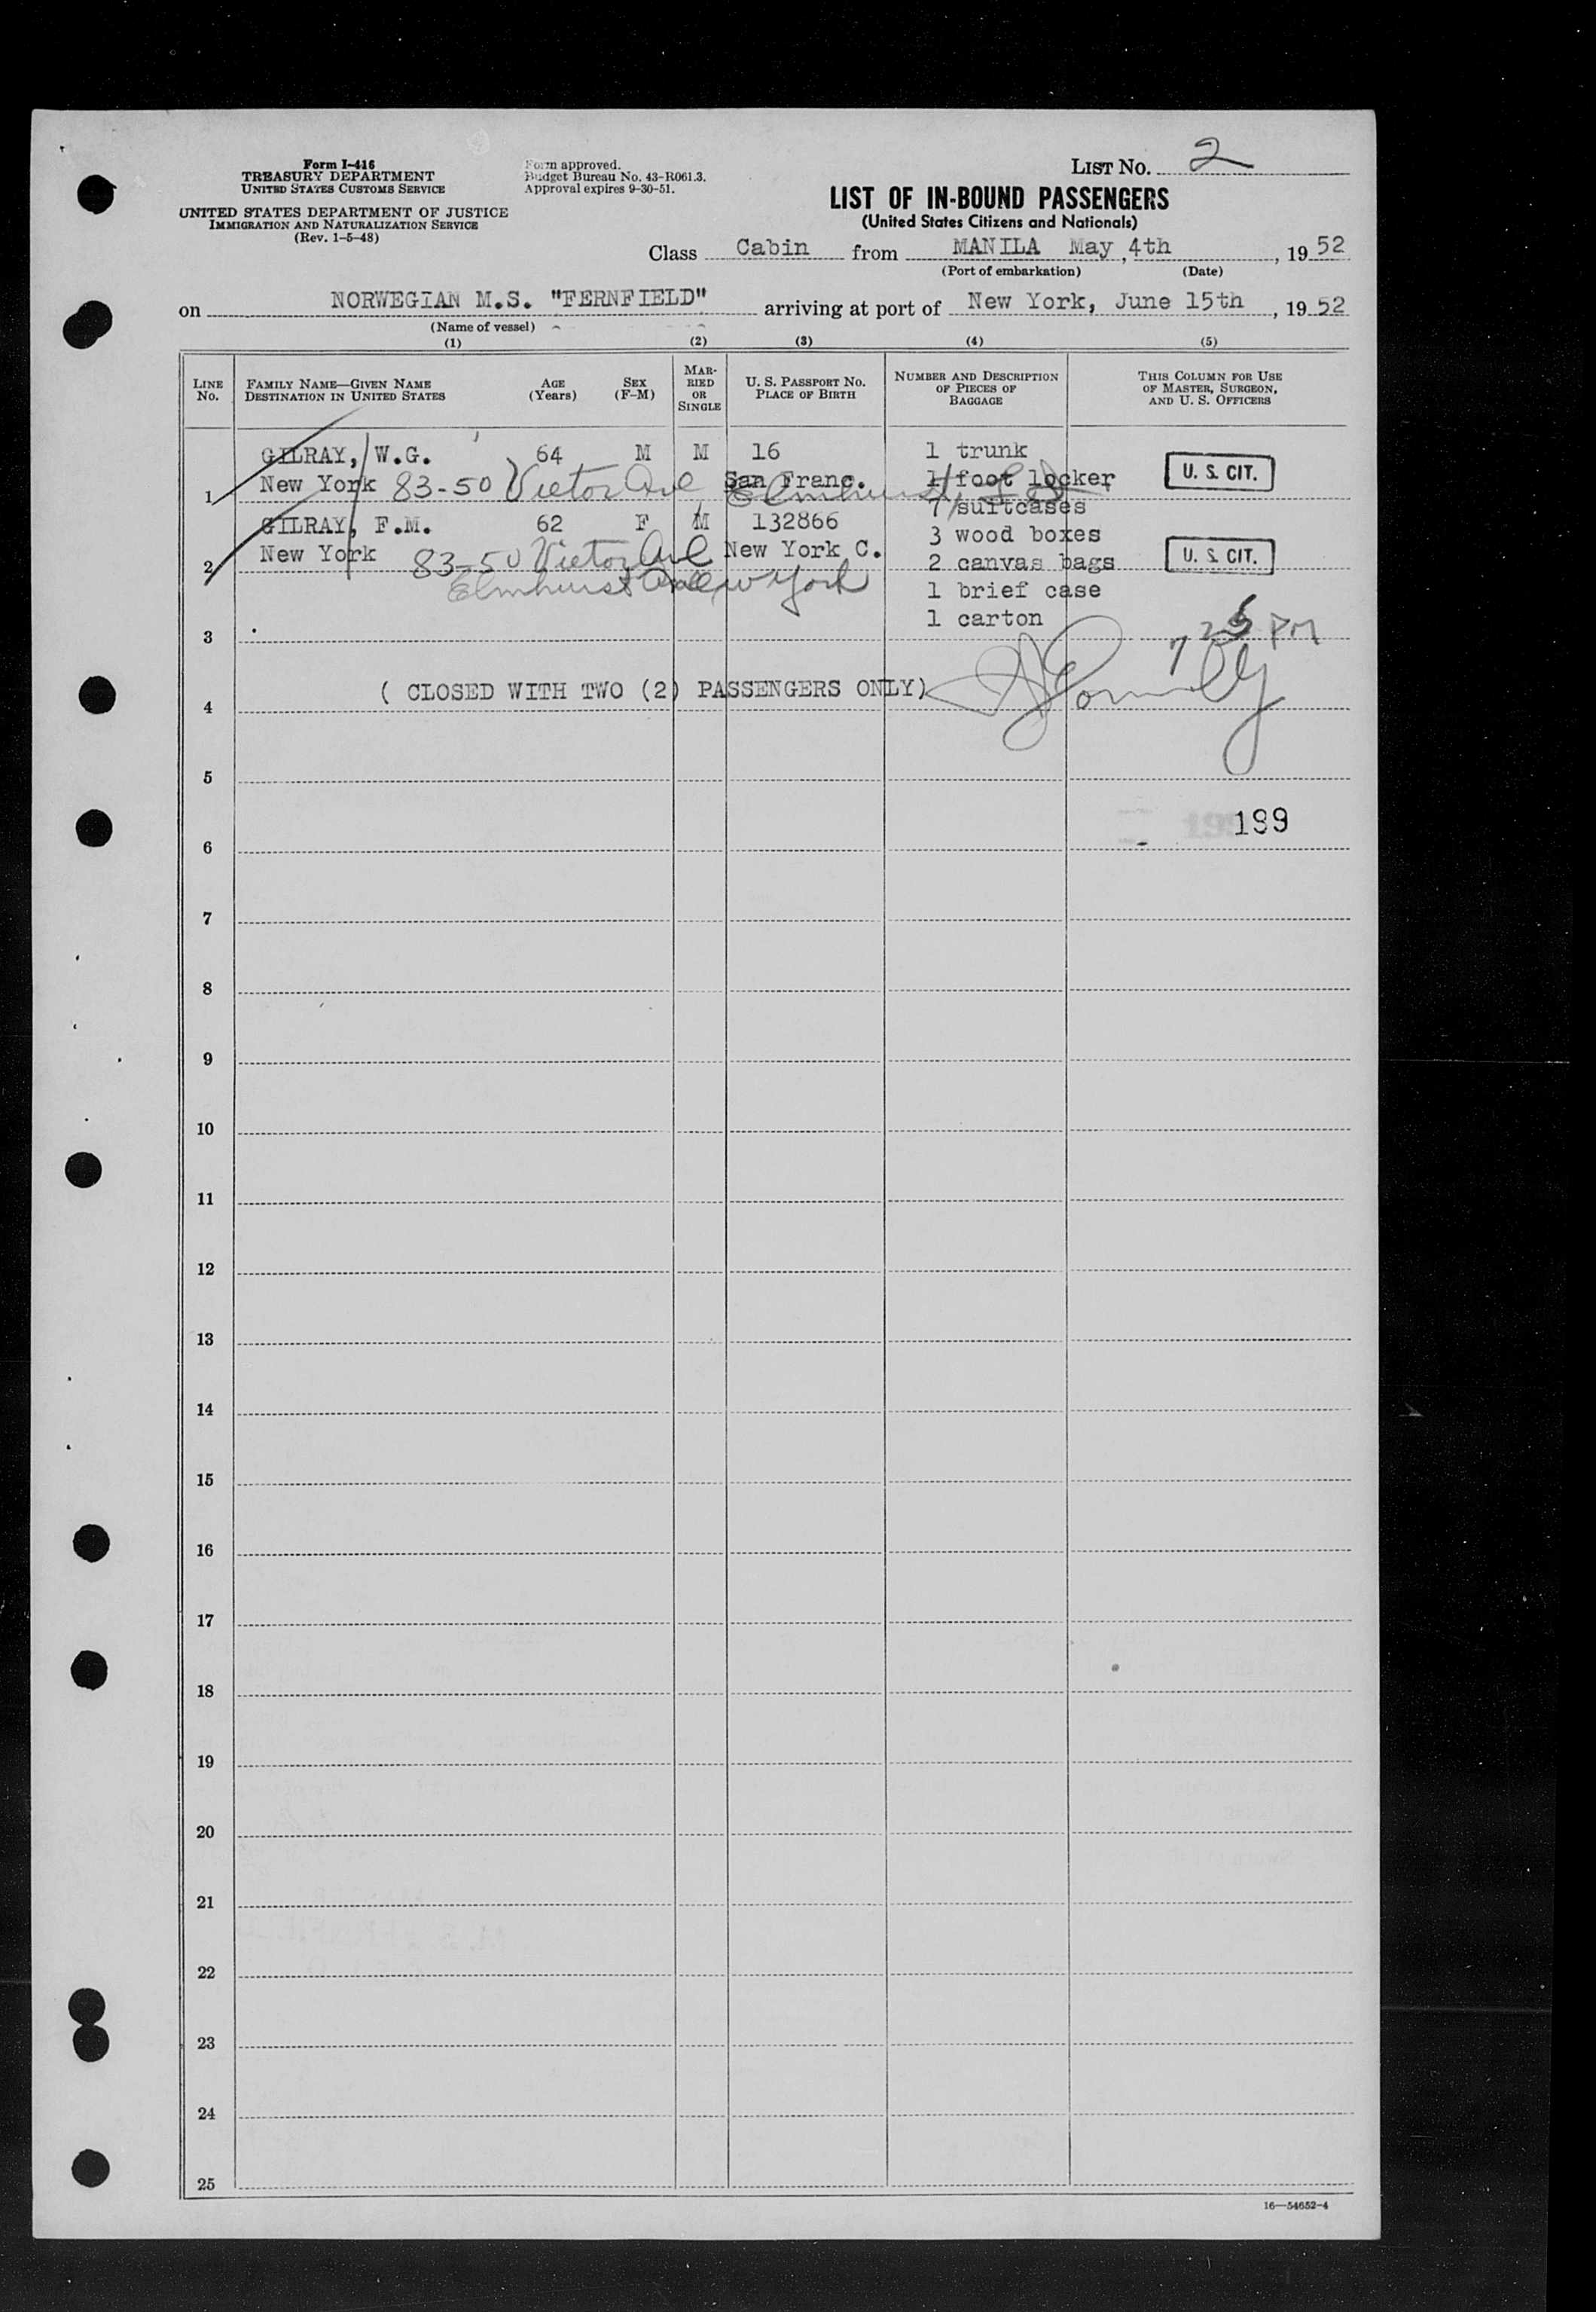 Form I-416
TREASURY DEPARTMENT
UNITED STATES CUSTOMS SERVICE
UNITED STATES DEPARTMENT OF JUSTICE
IMMIGRATION AND NATURALIZATION SERVICE
(Rev. 1-5-48)
Form approved.
Budget Bureau No. 43-R061.3.
Approval expires 9-30-51.
LIST No. 2
LIST OF IN-BOUND PASSENGERS
(United States Citizens and Nationals)
Class Cabin from MANILA May 4th, 1952
(Port of embarkation) (Date)
on NORWEGIAN M.S. "FERNFIELD" arriving at port of New York, June 15th, 1952
(Name of vessel)
(1) (2) (3) (4) (5)
LINE No.
FAMILY NAME—GIVEN NAME
DESTINATION IN UNITED STATES
AGE (Years)
SEX (F-M)
MARRIED OR SINGLE
U. S. PASSPORT No.
PLACE OF BIRTH
NUMBER AND DESCRIPTION OF PIECES OF BAGGAGE
THIS COLUMN FOR USE OF MASTER, SURGEON, AND U. S. OFFICERS
GILRAY, W.G. 64 M M 16 1 trunk
1 New York 83-50 Victor Ave San Franc. Elmhurst 1 foot locker U. S. CIT.
7 suitcases
GILRAY, F.M. 62 F M 132866 3 wood boxes
2 New York 83-50 Victor Ave New York C. 2 canvas bags U. S. CIT.
Elmhurst New York 1 brief case
3 1 carton
PM
4 ( CLOSED WITH TWO (2) PASSENGERS ONLY)
5
199
6
7
8
9
10
11
12
13
14
15
16
17
18
19
20
21
22
23
24
25
16—54652-4